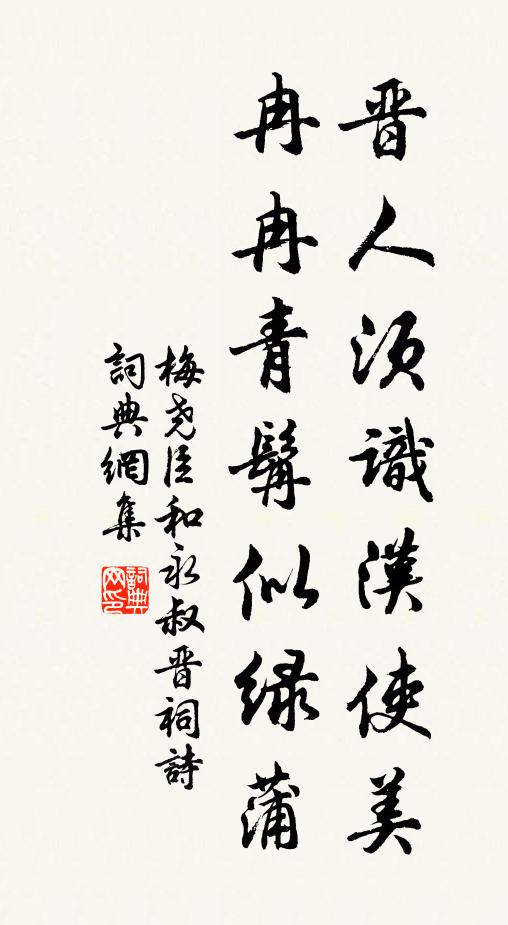 晋人須識漢使美
冉冉青髯似綠蒲
梅堯臣和永叔晋祠詩
詞典網集
詞典網印